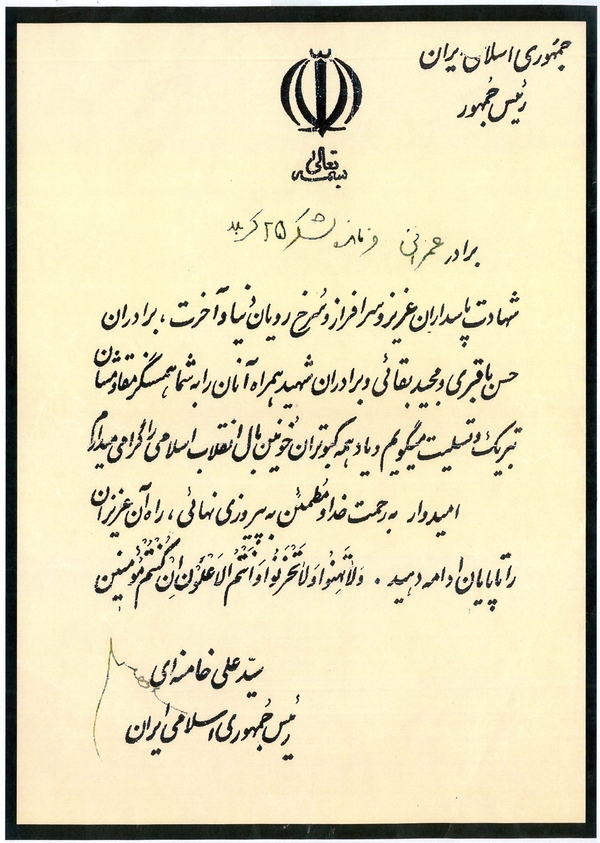 جمهوری اسلامی ایران
رئیس جمهور
بسمه تعالی
برادر عمرانی فرمانده لشگر ۲۵ کربلا
شهادت پاسداران عزیز و سرافراز و سُرخ رویان دُنیا و آخرت ، برادران
حسن باقری و مجید بقائی و برادران شهید همراه آنان را به شما همسنگر مقاومشان
تبریک و تسلیت میگویم و یاد همه کبوتران خونین بال انقلاب اسلامی را گرامی میدارم
امیدوار به رحمت خدا و مُطمئن به پیروزی نهائی ، راه آن عزیزان
را تا پایان ادامه دهید . وَلاتَهِنُوا وَلاتَحْزَنُوا وَاَنْتُمُ الاَعْلَوْنَ اِنْ کُنْتُمْ مُؤْمِنین
سیّد علی خامنه‌ای
رئیس جُمهوری اسلامی ایران